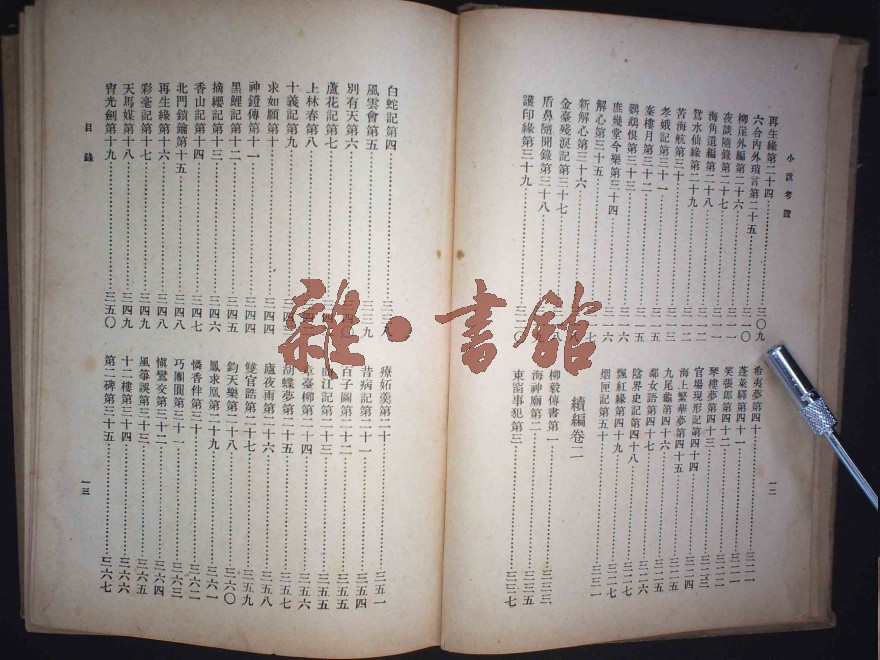 小說考證
再生緣第二十四 三〇九
六合內外瑣言第二十五 三一〇
柳崖外編第二十六
夜談隨錄第二十七
海角遺編第二十八
鴛水仙緣第二十九
苦海航第三十
孝娥記第三十一
秦樓月第三十二 三一五
鸚鵡恨第三十三
庶幾堂今樂第三十四 三一六
解心第三十五
新解心第三十六
金臺殘淚記第三十七
盾鼻隨聞錄第三十八
護印緣第三十九 三二〇
希夷夢第四十 三二一
蓬萊驛第四十一 三二一
笑張郎第四十二
琴樓夢第四十三
官場現形記第四十四
海上繁華夢第四十五 三二四
九尾龜第四十六 三二五
鄰女語第四十七 三二六
陰界史記第四十八 三二七
飄紅緣第四十九
烟匣記第五十 三三一
續編卷二
柳毅傳書第一
海神廟第二
東窗事犯第三 三三七
一二
白蛇記第四
風雲會第五 三三九
別有天第六 三四〇
蘆花記第七
上林春第八
十義記第九
求如願第十 三四四
神鐙傳第十一 三四四
黑鯉記第十二 三四五
摘纓記第十三 三四六
香山記第十四 三四七
北門鎖鑰第十五 三四八
再生緣第十六 三四八
彩毫記第十七 三四九
天馬媒第十八 三四九
宵光劍第十九 三五〇
療妬羹第二十 三五一
昔病記第二十一 三五四
百子圖第二十二 三五五
江記第二十三 三五五
章臺柳第二十四 三五六
胡蝶夢第二十五 三五七
廬夜雨第二十六 三五八
鰎官誥第二十七 三五九
鈞天樂第二十八 三六〇
鳳求凰第二十九 三六一
憐香伴第三十 三六二
巧團圓第三十一 三六三
愼鸞交第三十二 三六四
風箏誤第三十三 三六五
十二樓第三十四 三六六
第二碑第三十五 三六七
目錄
一三
雜·書館